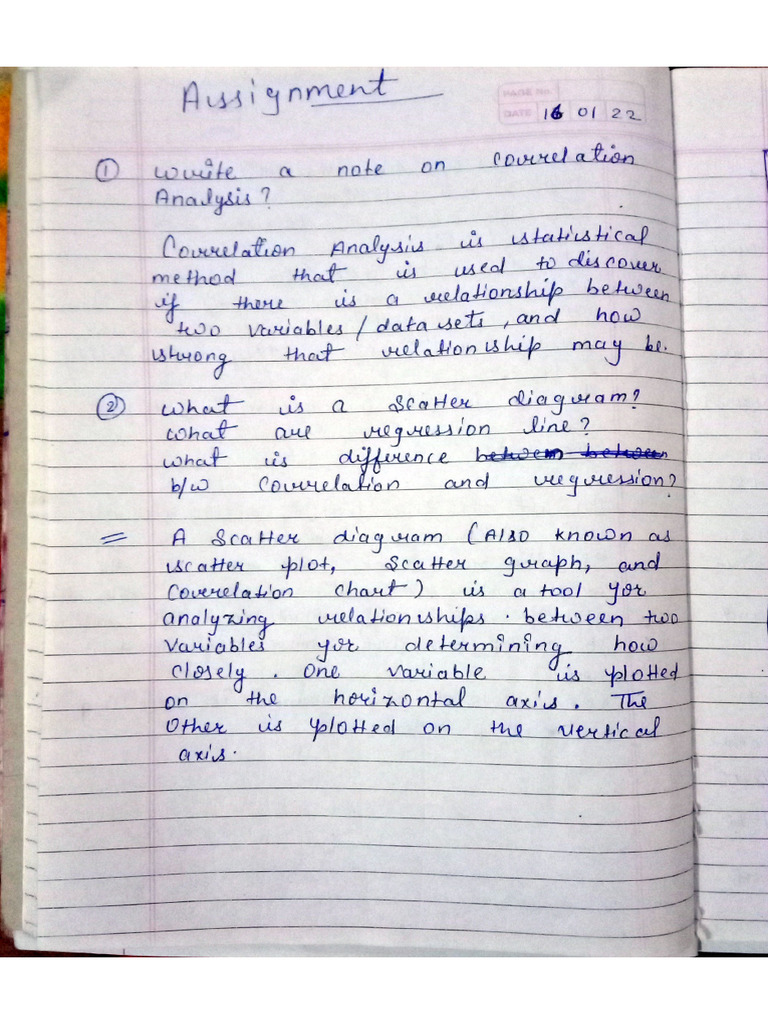 Assignment
PAGE No.
DATE 16 01 22
① write a note on correlation
Analysis?
Correlation Analysis is statistical
method that is used to discover
if there is a relationship between
two variables / data sets, and how
strong that relationship may be.
② what is a Scatter diagram?
what are regression line?
what is difference between between
b/w correlation and regression?
= A Scatter diagram (Also known as
scatter plot, Scatter graph, and
Correlation chart) is a tool for
analyzing relationships. between two
variables for determining how
closely. One variable is plotted
on the horizontal axis. The
other is plotted on the vertical
axis.